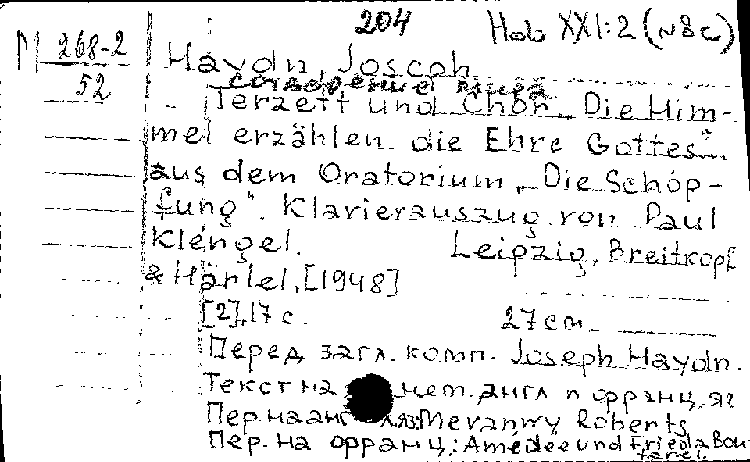 204 Hob XXI:2 (N8c)
М 268-2
52
Haydn, Joseph.
сотворение мира
Terzett und Chor „Die Him-
mel erzählen die Ehre Gottes"
aus dem Oratorium „Die Schöp-
fung". Klavierauszug von Paul
Klengel. Leipzig, Breitkopf
& Härtel, [1948]
[2], 17 с. 27 cm.
Перед загл. комп. Joseph Haydn.
Текст на нем. англ и франц. яз
Пер. на анг яз: Meranny Roberts
Пер. на франц.: Amédée und Frieda Bou-
tarel